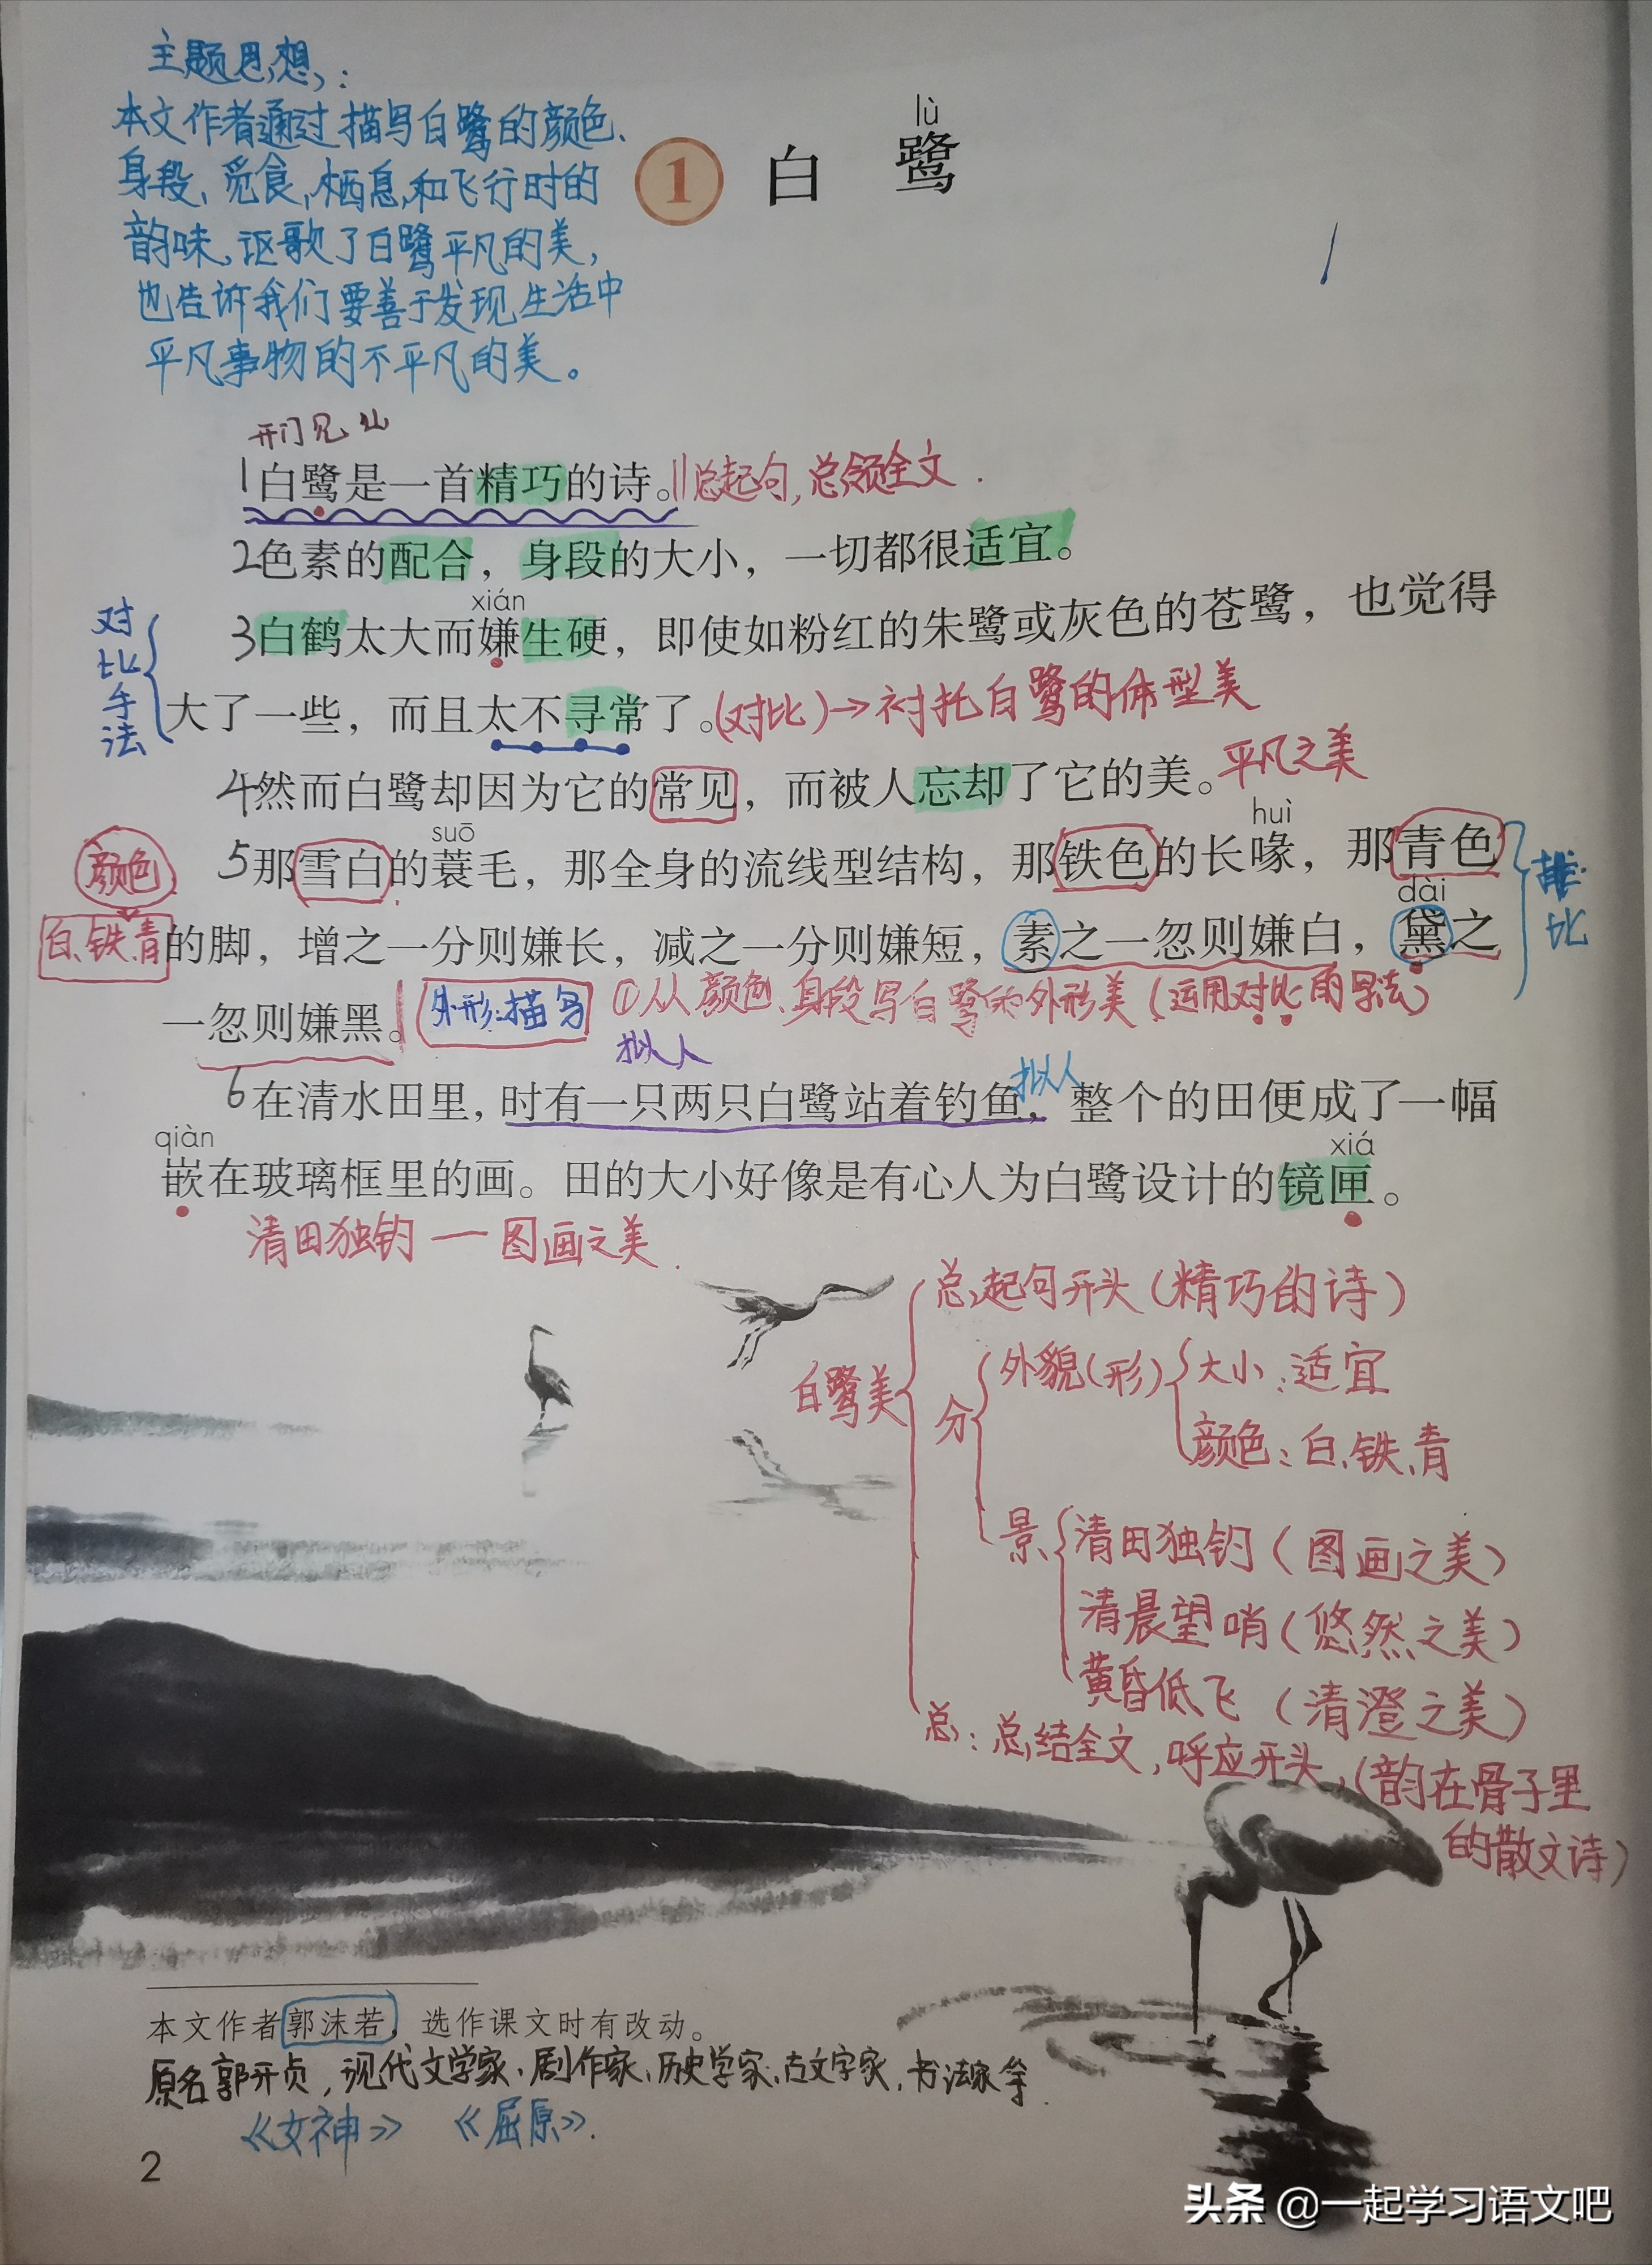 主题思想:
本文作者通过描写白鹭的颜色、
身段、觅食、栖息、和飞行时的
韵味,讴歌了白鹭平凡的美,
也告诉我们要善于发现生活中
平凡事物的不平凡的美。
lù
1 白鹭
开门见山
1白鹭是一首精巧的诗。||总起句,总领全文.
2色素的配合，身段的大小，一切都很适宜。
xián
3白鹤太大而嫌生硬，即使如粉红的朱鹭或灰色的苍鹭，也觉得
对比手法
大了一些，而且太不寻常了。(对比)→衬托白鹭的体型美
4然而白鹭却因为它的常见，而被人忘却了它的美。平凡之美
suō huì
颜色
5那雪白的蓑毛，那全身的流线型结构，那铁色的长喙，那青色
dài
白、铁、青
的脚，增之一分则嫌长，减之一分则嫌短，素之一忽则嫌白，黛之
排比
一忽则嫌黑。外形:描写 ①从颜色、身段写白鹭的外形美(运用对比的写法)
拟人 拟人
6在清水田里，时有一只两只白鹭站着钓鱼，整个的田便成了一幅
qiàn xiá
嵌在玻璃框里的画。田的大小好像是有心人为白鹭设计的镜匣。
清田独钓 — 图画之美.
总起句开头(精巧的诗)
白鹭美
分
外貌(形)
大小:适宜
颜色:白、铁、青
景
清田独钓(图画之美)
清晨望哨(悠然之美)
黄昏低飞(清澄之美)
总:总结全文,呼应开头,(韵在骨子里
的散文诗)
本文作者郭沫若，选作课文时有改动。
原名郭开贞,现代文学家、剧作家、历史学家、古文字家、书法家等.
《女神》 《屈原》.
2
头条 @一起学习语文吧